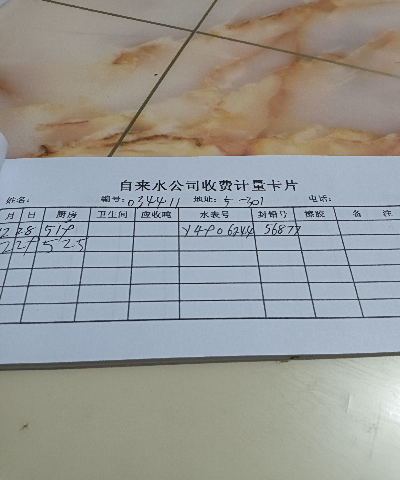 自来水公司收费计量卡片
姓名: 编号: 034411 地址: 5-301 电话:
月 日 厨房 卫生间 应收吨 水表号 封铅号 橡胶 备 注
2 28 519 Y4906244 56877
2 29 525